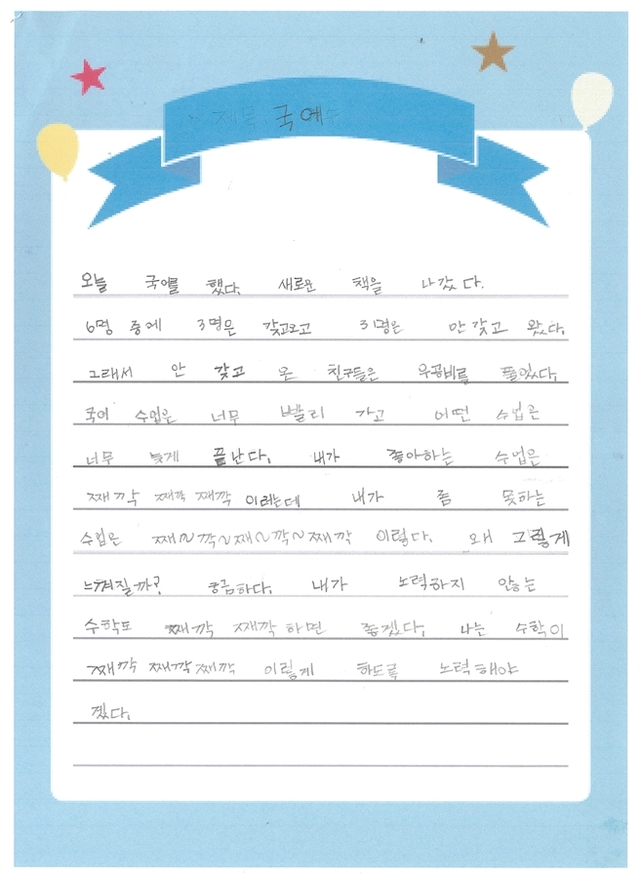 국예
오늘 국어를 했다. 새로운 책을 나갔다.
6명 중에 3명은 갖고오고 3명은 안 갖고 왔다.
그래서 안 갖고 온 친구들은 우공비를 풀었다.
국어 수업은 너무 빨리 가고 어떤 수업은
너무 늦게 끝난다. 내가 좋아하는 수업은
째깍 째깍 째깍 이러는데 내가 좀 못하는
수업은 째~깍~째~깍~째깍 이렇다. 왜 그렇게
느껴질까? 궁금하다. 내가 노력하지 않는
수학도 째깍 째깍 하면 좋겠다. 나는 수학이
째깍 째깍 째깍 이렇게 하도록 노력해야
겠다.